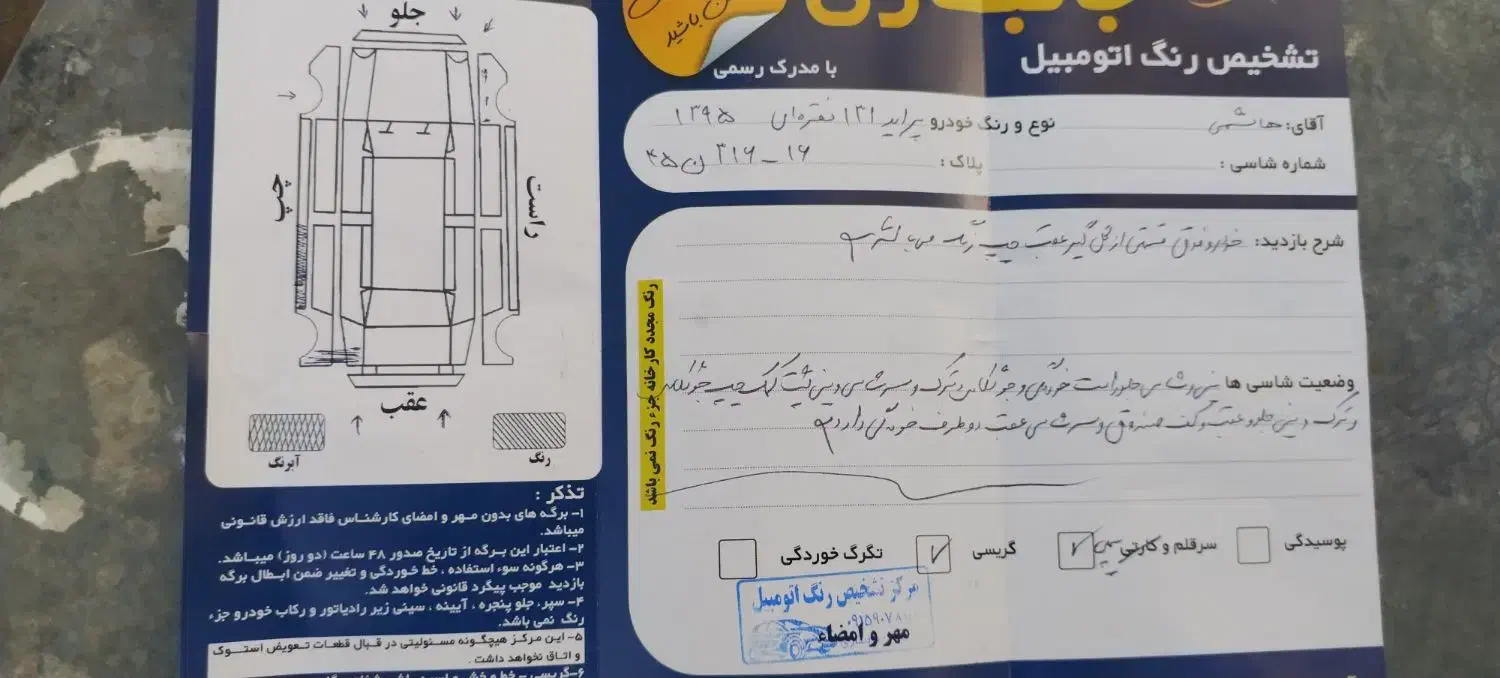 باشید
تشخیص رنگ اتومبیل
با مدرک رسمی
آقای: هاشمی نوع و رنگ خودرو پراید ۱۳۱ نقره‌ای ۱۳۹۵
شماره شاسی : پلاک : ۳۱۶-۱۶ ن ۴۵
شرح بازدید: خودرو فوق قسمتی از گلگیر عقب چپ رنگ می‌باشد
وضعیت شاسی ها سینی و شاسی جلو راست خوردگی و جوشکاری و ترک و سر شاسی و سینی پشت کمک چپ جوشکاری
و ترک و سینی جلو و عقب و کف صندوق و سر شاسی عقب دو طرف خوردگی دارد
پوسیدگی
سرقلم و کارتی
گریسی
تگرگ خوردگی
مرکز تشخیص رنگ اتومبیل
مهر و امضاء
رنگ مجدد کارخانه جزء رنگ نمی باشد
جلو
چپ
راست
عقب
آبرنگ
رنگ
تذکر :
۱- برگه های بدون مهر و امضای کارشناس فاقد ارزش قانونی
میباشد.
۲- اعتبار این برگه از تاریخ صدور ۴۸ ساعت (دو روز) میباشد.
۳- هرگونه سوء استفاده ، خط خوردگی و تغییر ضمن ابطال برگه
بازدید موجب پیگرد قانونی خواهد شد.
۴- سپر، جلو پنجره ، آیینه ، سینی زیر رادیاتور و رکاب خودرو جزء
رنگ نمی باشد.
۵- این مرکز هیچگونه مسئولیتی در قبال قطعات تعویض استوک
و اتاق نخواهد داشت .